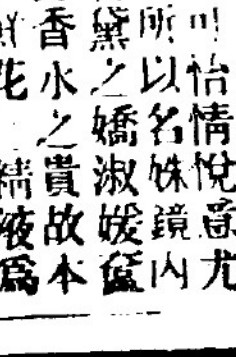 可怡情悅爵尤
所以名姝鏡內
黛之嬌淑媛奩
香水之貴故本
花　精液爲